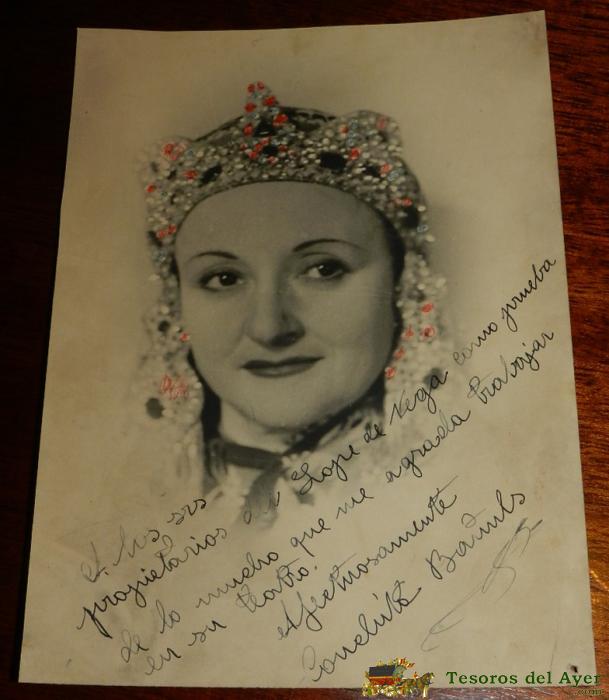 A los srs
propietarios del Lope de Vega como prueba
de lo mucho que me agrada trabajar
en su teatro.
Afectuosamente
Conchita Bañuls
Tesoros del Ayer
.com